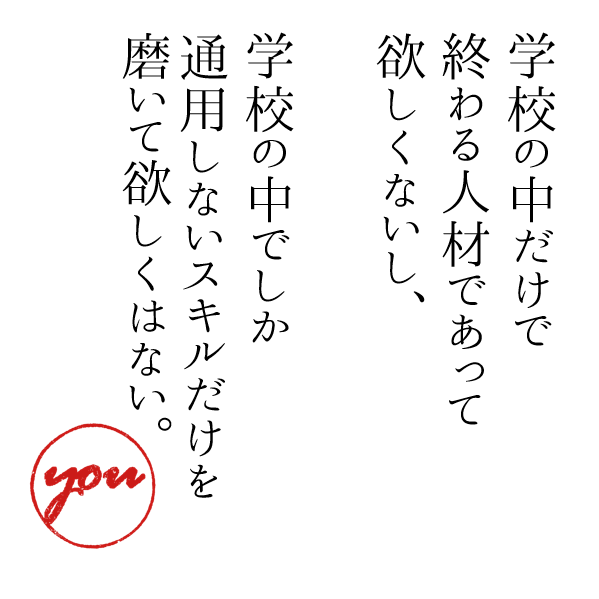 学校の中だけで
終わる人材であって
欲しくないし、
学校の中でしか
通用しないスキルだけを
磨いて欲しくはない。
you